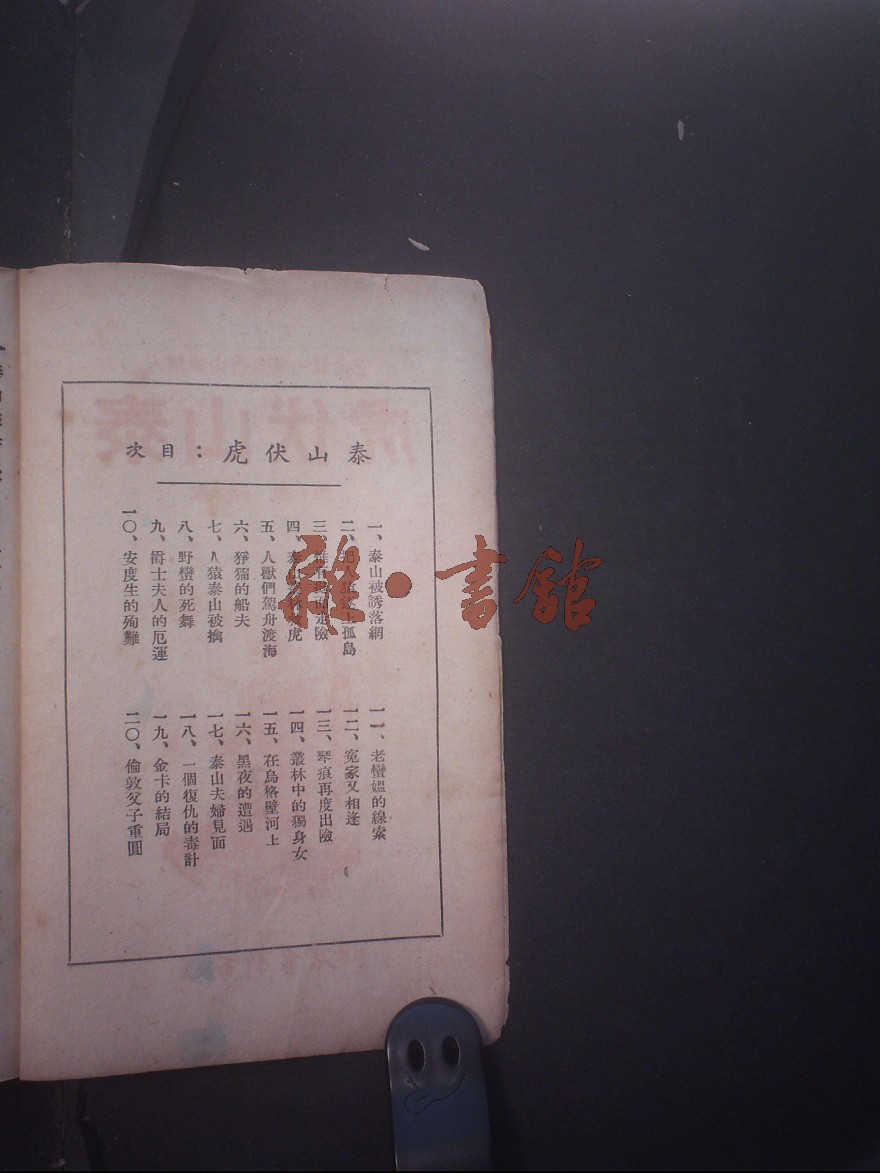 泰山伏虎：目次
一、泰山被誘落網
二、孤島
三、險
四、虎
五、人獸們駕舟渡海
六、猙獰的船夫
七、人猿泰山被擒
八、野蠻的死舞
九、爵士夫人的厄運
一〇、安度生的殉難
一一、老蠻媼的線索
一二、冤家又相逢
一三、琴痕再度出險
一四、叢林中的獨身女
一五、在烏格壁河上
一六、黑夜的遭遇
一七、泰山夫婦見面
一八、一個復仇的毒計
一九、金卡的結局
二〇、倫敦父子重圓
雜·書館